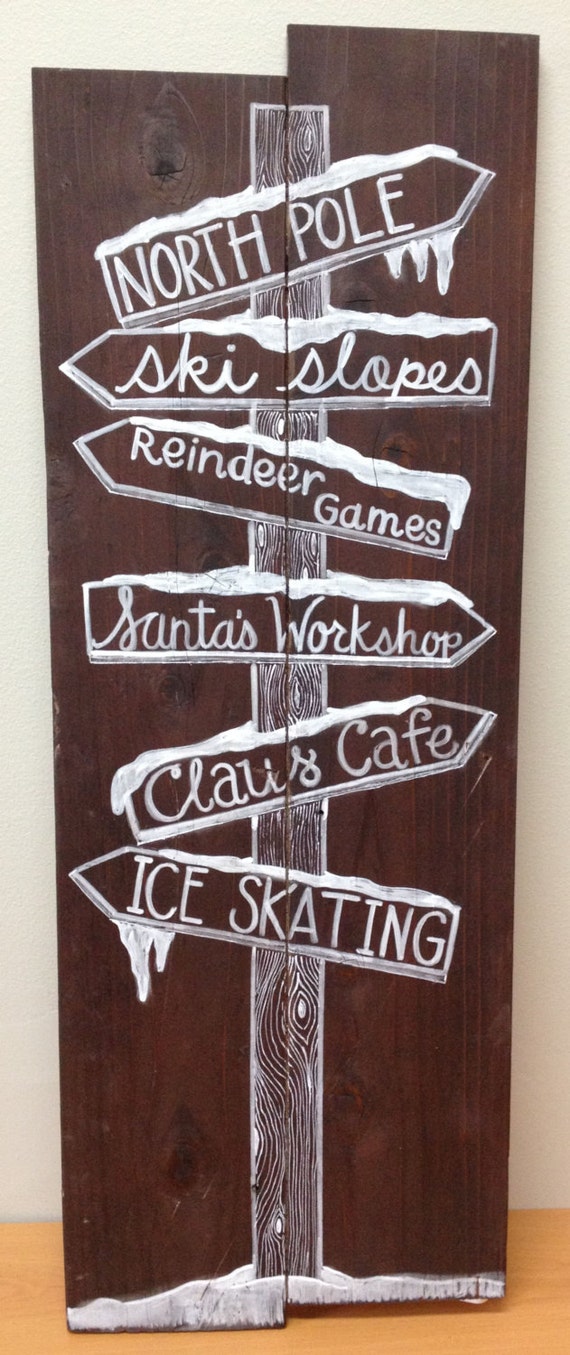 NORTH POLE
ski slopes
Reindeer
Games
Santa's Workshop
Claus Cafe
ICE SKATING